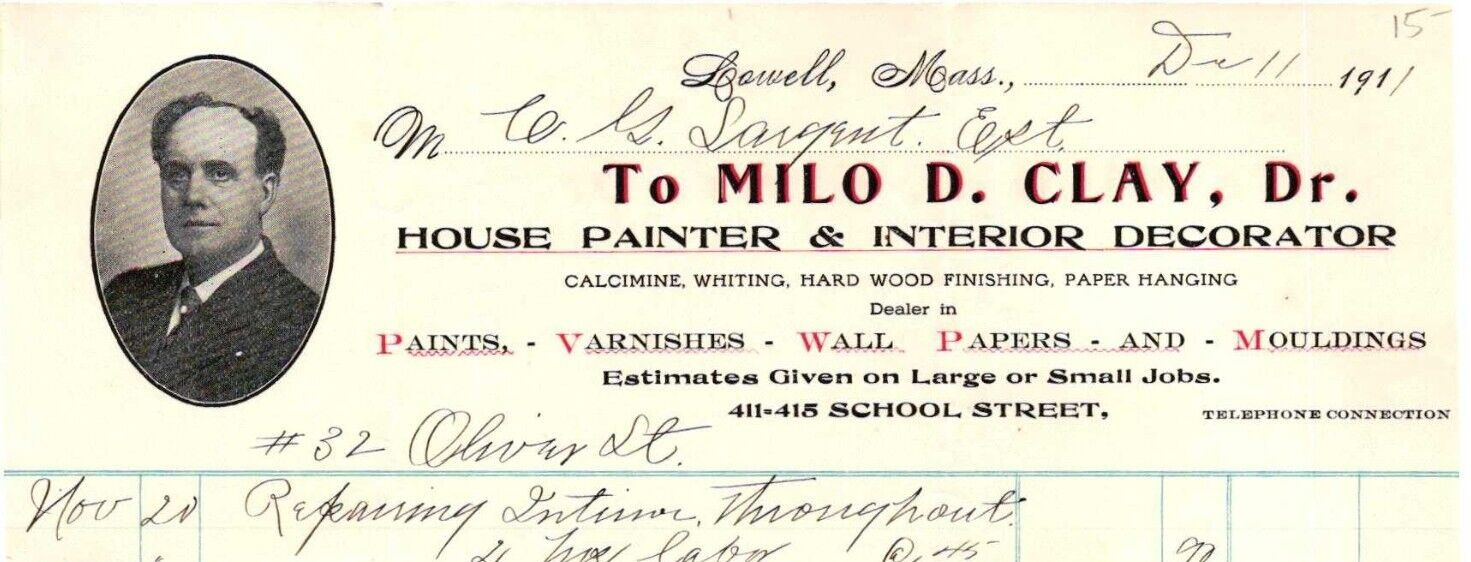 15-
Lowell, Mass., Dec 11 1911
M C. G. Sargent. Est.
To MILO D. CLAY, Dr.
HOUSE PAINTER & INTERIOR DECORATOR
CALCIMINE, WHITING, HARD WOOD FINISHING, PAPER HANGING
Dealer in
PAINTS, - VARNISHES - WALL PAPERS - AND - MOULDINGS
Estimates Given on Large or Small Jobs.
411=415 SCHOOL STREET, TELEPHONE CONNECTION
#32 Oliver St.
Nov 20 Repairing Interior, throughout.
2 hos labor @.45 90